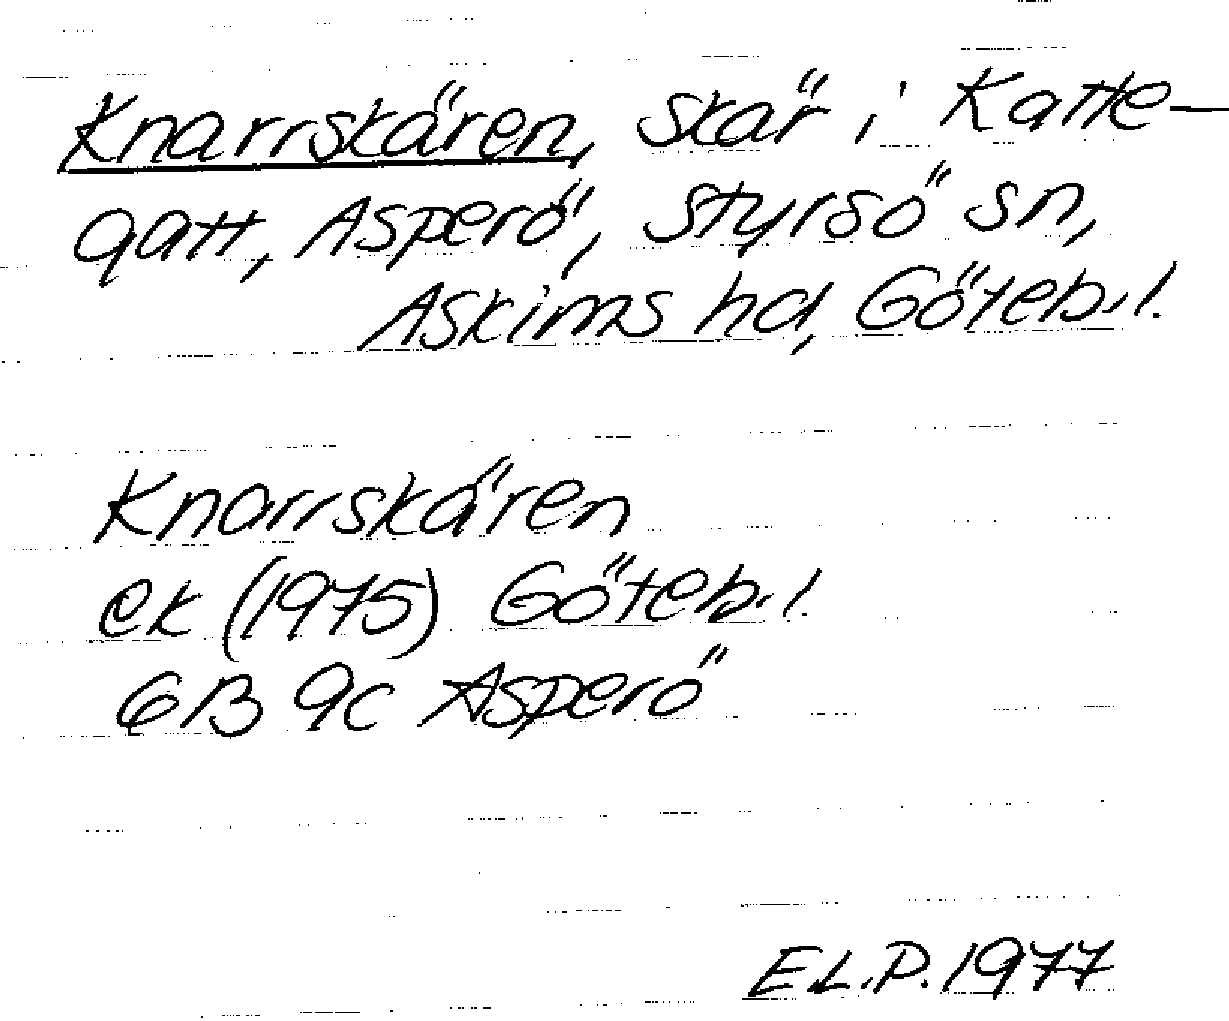 Knarrskären, skär i Katte-
gatt, Asperö, Styrsö sn,
Askims hd, Göteb.l.
Knarrskären
ek (1975) Göteb.l.
6B 9c Asperö
E.L.P. 1977